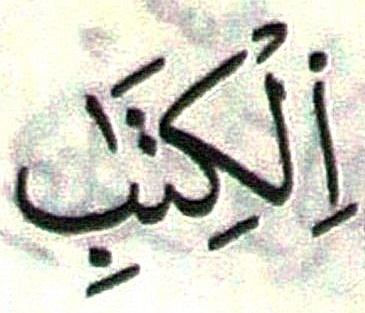 اِ۬لْكِتَٰبِ